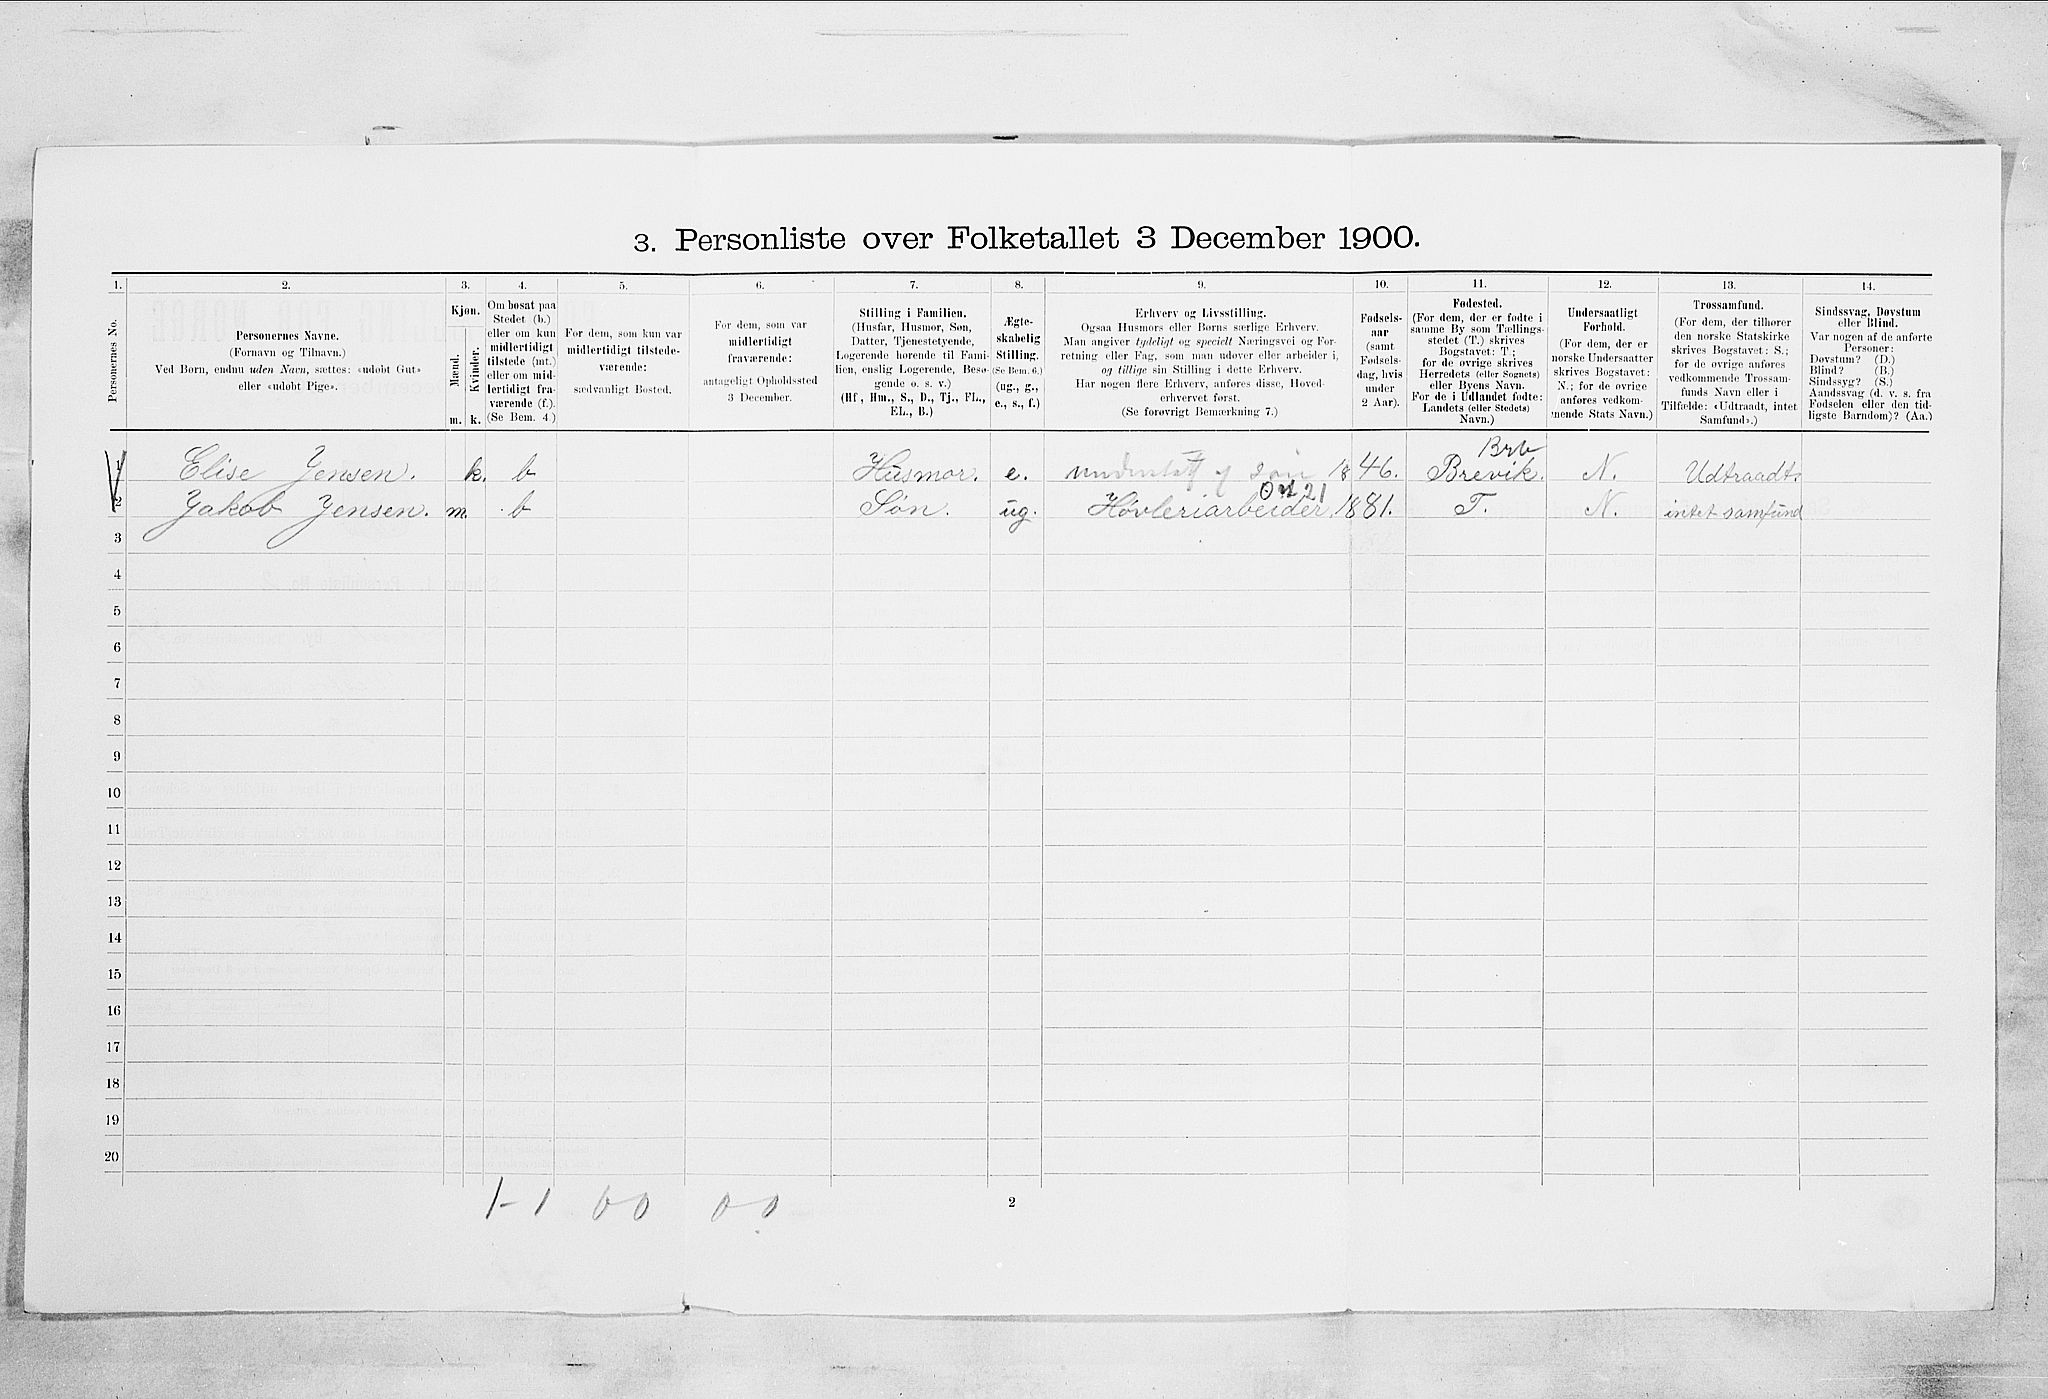 3. Personliste over Folketallet 3 December 1900.
1. 2. 3. 4. 5. 6. 7. 8. 9. 10. 11. 12. 13. 14.
Personernes No.
Personernes Navne.
(Fornavn og Tilnavn.)
Ved Børn, endnu uden Navn, sættes: «udøbt Gut»
eller «udøbt Pige».
Kjøn.
Mænd.
Kvinder.
m. k.
Om bosat paa
Stedet (b.)
eller om kun
midlertidigt
tilstede (mt.)
eller om mid-
lertidigt fra-
værende (f.).
(Se Bem. 4.)
For dem, som kun var
midlertidigt tilstede-
værende:
sædvanligt Bosted.
For dem, som var
midlertidigt
fraværende:
antageligt Opholdssted
3 December.
Stilling i Familien.
(Husfar, Husmor, Søn,
Datter, Tjenestetyende,
Logerende hørende til Fami-
lien, enslig Logerende, Besø-
gende o. s. v.)
(Hf., Hm., S., D., Tj., FL.,
EL., B.)
Ægte-
skabelig
Stilling.
(Se Bem. 6.)
(ug., g.,
e., s., f.)
Erhverv og Livsstilling.
Ogsaa Husmors eller Børns særlige Erhverv.
Man angiver tydeligt og specielt Næringsvei og For-
retning eller Fag, som man udøver eller arbeider i,
og tillige sin Stilling i dette Erhverv.
Har nogen flere Erhverv, anføres disse, Hoved-
erhvervet først.
(Se forøvrigt Bemærkning 7.)
Fødsels-
aar
(samt
Fødsels-
dag, hvis
under
2 Aar).
Fødested.
(For dem, der er fødte i
samme By som Tællings-
stedet (T.) skrives
Bogstavet: T.;
for de øvrige skrives
Herredets (eller Sognets)
eller Byens Navn.
For de i Udlandet fødte:
Landets (eller Stedets)
Navn.)
Undersaatligt
Forhold.
(For dem, der er
norske Undersaatter
skrives Bogstavet:
N.; for de øvrige
anføres vedkom-
mende Stats Navn.)
Trossamfund.
(For dem, der tilhører
den norske Statskirke
skrives Bogstavet: S.;
for de øvrige anføres
vedkommende Trossam-
funds Navn eller i
Tilfælde: «Udtraadt, intet
Samfund».)
Sindssvag, Døvstum
eller Blind.
Var nogen af de anførte
Personer:
Døvstum? (D.)
Blind? (B.)
Sindssyg? (S.)
Aandssvag (d. v. s. fra
Fødselen eller den tid-
ligste Barndom)? (Aa.)
Brb
1 Elise Jensen. k. b Husmor. e. 1846. Brevik. N. Udtraadt.
21
2 Jakob Jensen. m. b Søn. ug. Høvleriarbeider. 1881. T. N. intet samfund
3
4
5
6
7
8
9
10
11
12
13
14
15
16
17
18
19
20
1-1 00 00
2